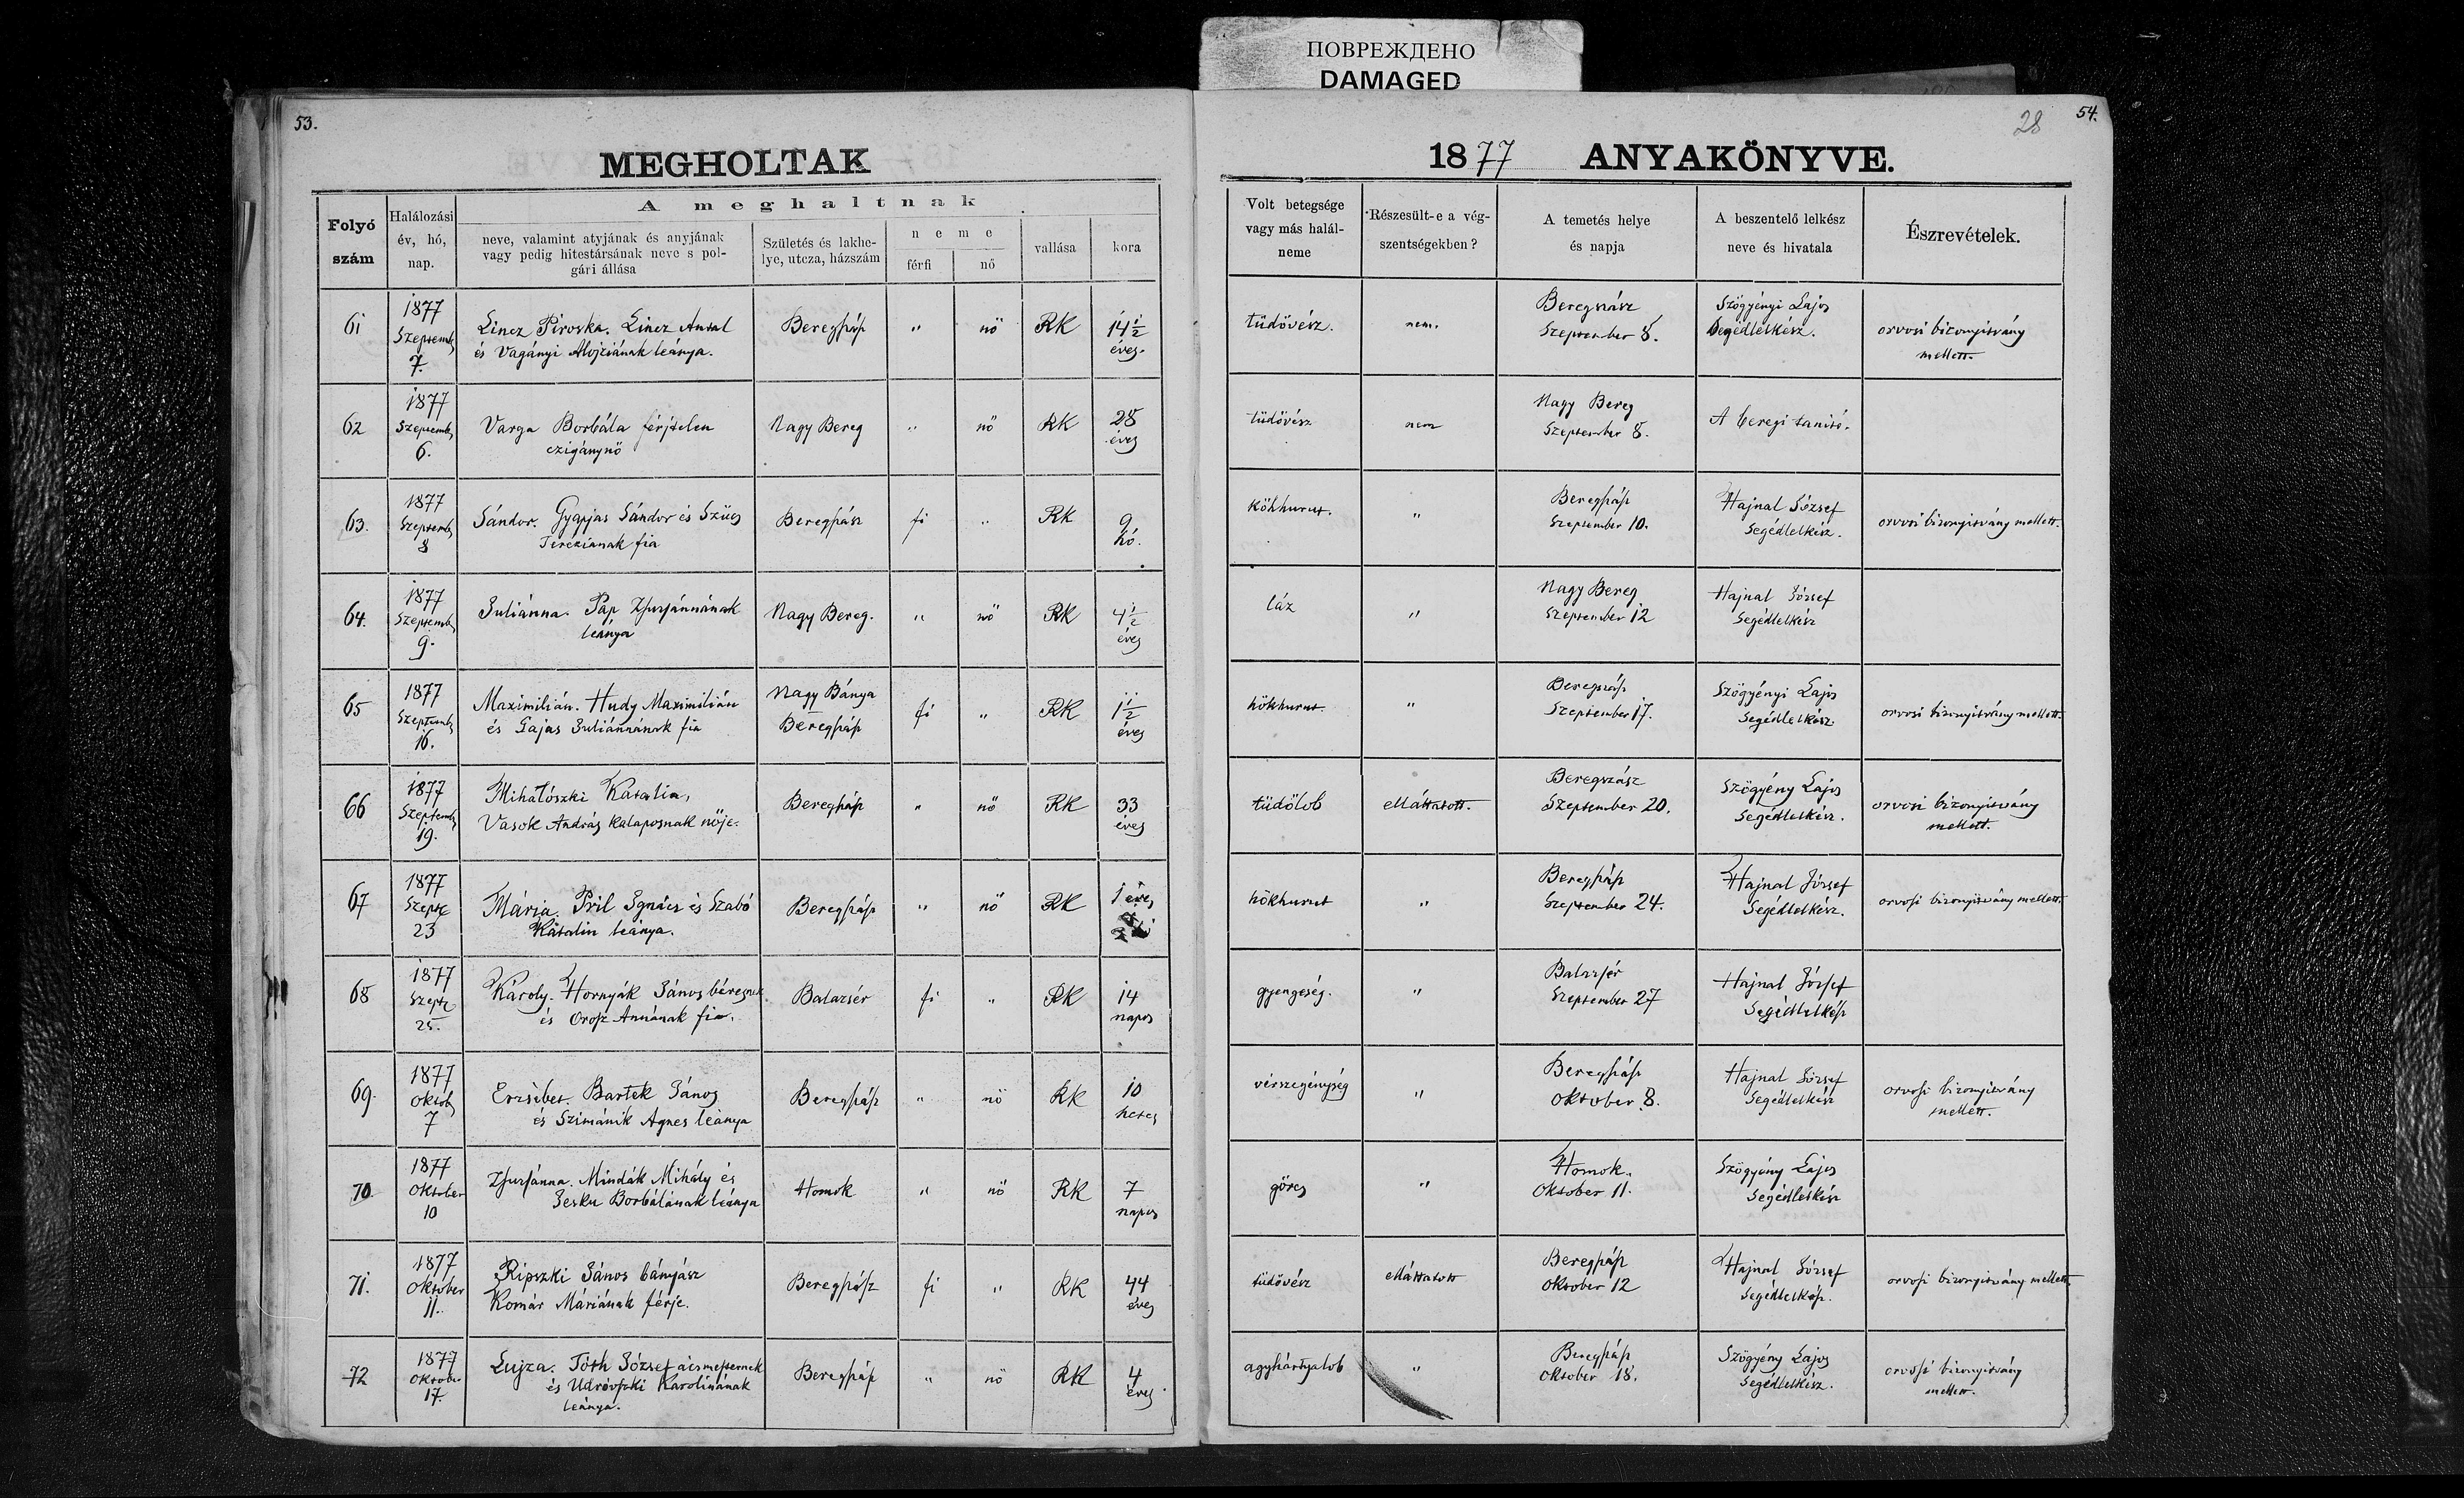 ПОВРЕЖДЕНО
DAMAGED
53.
MEGHOLTAK
Folyó szám
Halálozási év, hó, nap.
A meghaltnak
neve, valamint atyjának és anyjának
vagy pedig hitestársának neve s pol-
gári állása
Születés és lakhe-
lye, utcza, házszám
neme
férfi
nő
vallása
kora
61
1877
Szeptemb
7.
Lincz Piroska. Lincz Antal
és Vagányi Alojziának leánya.
Beregszász
"
nő
RK
14 1/2
éves.
62
1877
Szeptemb
6.
Varga Borbála férjtelen
czigánynő
Nagy Bereg
"
nő
RK
28
éves
63.
1877
Szeptemb
8
Sándor. Gyapjas Sándor és Szücs
Terezianak fia
Beregszász
fi
"
RK
9
hó.
64.
1877
Szeptemb
9.
Juliánna. Pap Zsuzsánnának
leánya
Nagy Bereg.
"
nő
RK
4 1/2
éves
65
1877
Szeptemb
16.
Maximilián. Hudy Maximilián
és Gajas Juliánnának fia
Nagy Bánya
Beregszász
fi
"
RK
1 1/2
éves
66
1877
Szeptemb
19.
Mihalószki Katalin,
Vasok András kalaposnak nője.
Beregszász
"
nő
RK
33
éves
67
1877
Szept
23
Mária. Pril Ignácz és Szabó
Katalin leánya.
Beregszász
"
nő
RK
1 éves
68
1877
Szept
25.
Károly. Hornyák János béresnek
és Orosz Annának fia.
Balazsér
fi
"
RK
14
napos
69.
1877
Oktob
7
Erzsébet. Bartek János
és Szimánik Agnes leánya
Beregszász
"
nő
RK
10
hetes
70
1877
Oktober
10
Zsuzsánna. Mindák Mihály és
Jesku Borbálának leánya
Homok
"
nő
RK
7
napos
71.
1877
Oktober
11.
Ripszki János bányász
Komár Máriának férje.
Beregszász
fi
"
RK
44
éves
72
1877
Oktober
17.
Lujza. Tóth József ácsmesternek
és Udróvszki Karolinának
leánya.
Beregszász
"
nő
RK
4
éves.
28
54.
1877 ANYAKÖNYVE.
Volt betegsége
vagy más halál-
neme
Részesült-e a vég-
szentségekben?
A temetés helye
és napja
A beszentelő lelkész
neve és hivatala
Észrevételek.
tüdővész.
nem.
Beregszász
Szeptember 8.
Szögyényi Lajos
Segédlelkész.
orvosi bizonyitvány
mellett.
tüdővész
nem
Nagy Bereg
Szeptember 8.
A beregi tanító.
Kökhurut.
"
Beregszász
Szeptember 10.
Hajnal József
Segédlelkész.
orvosi bizonyitvány mellett.
láz
"
Nagy Bereg
Szeptember 12
Hajnal József
Segédlelkész
hökhurut
"
Beregszász
Szeptember 17.
Szögyényi Lajos
Segédlelkész.
orvosi bizonyitvány mellett.
tüdőlob
elláttatott.
Beregszász
Szeptember 20.
Szögyény Lajos
Segédlelkész.
orvosi bizonyitvány
mellett.
hökhurut
"
Beregszász
Szeptember 24.
Hajnal József
Segédlelkész.
orvosi bizonyitvány mellett.
gyengeség.
"
Balazsér
Szeptember 27
Hajnal József
Segédlelkész
vérszegénység
"
Beregszász
Oktober 8.
Hajnal József
Segédlelkész
orvosi bizonyitvány
mellett.
görcs
"
Homok.
Oktober 11.
Szögyény Lajos
Segédlelkész
tüdővész
elláttatott
Beregszász
Oktober 12
Hajnal József
Segédlelkész.
orvosi bizonyitvány mellett
agyhártyalob
"
Beregszász
Oktober 18.
Szögyény Lajos
Segédlelkész.
orvosi bizonyitvány
mellett.